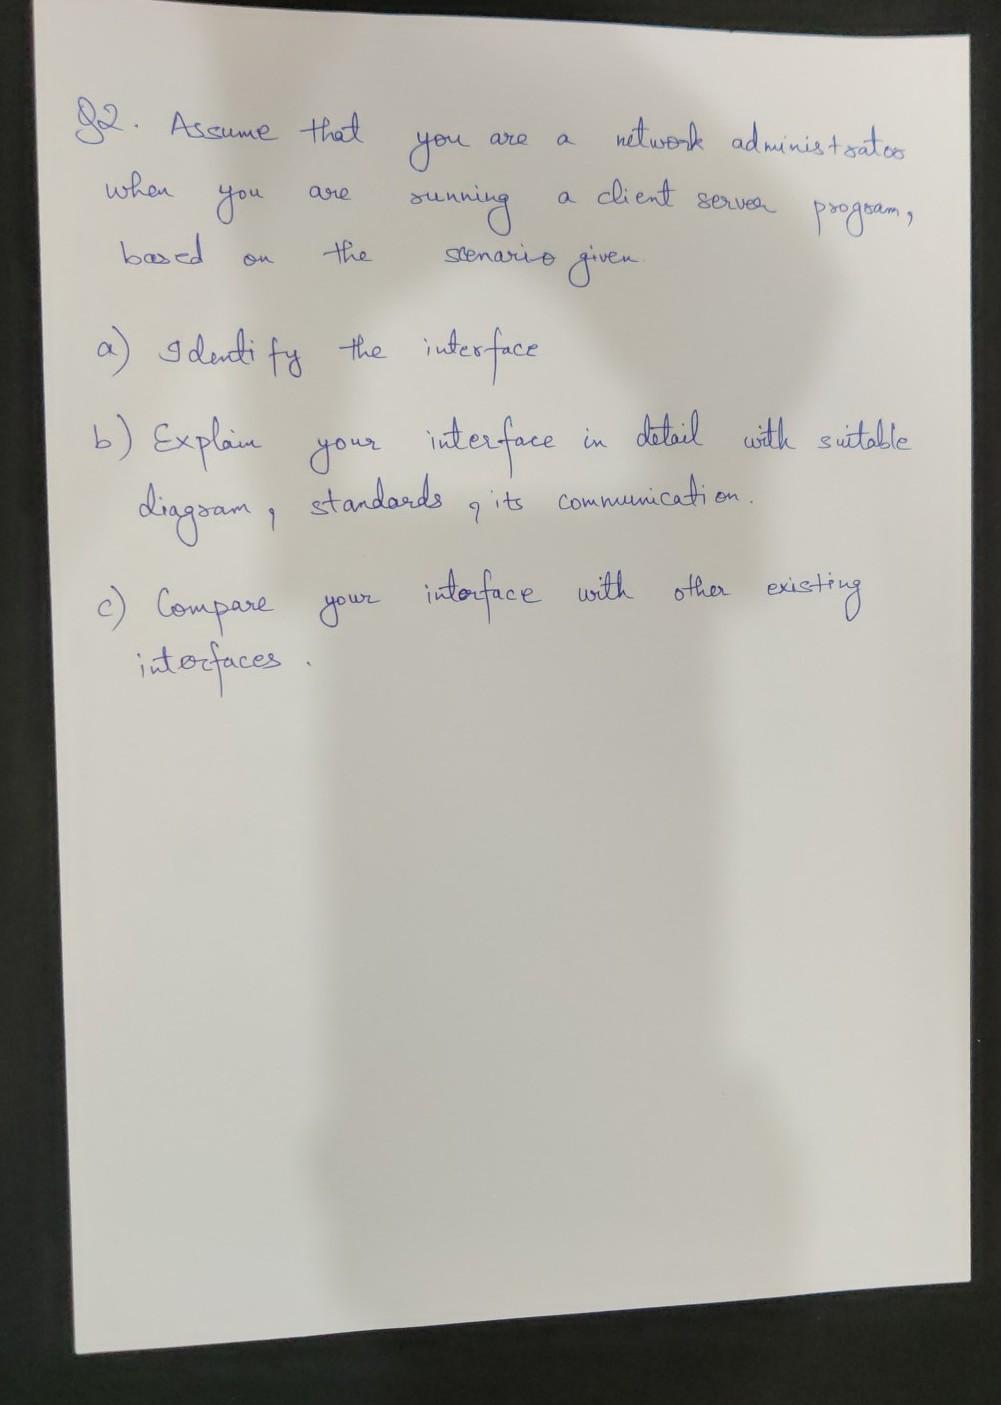 Q2. Assume that you are a network administrator
when you are running a client server program,
based on the scenario given.
a) Identify the interface
b) Explain your interface in detail with suitable
diagram, standards, its communication.
c) Compare your interface with other existing
interfaces.